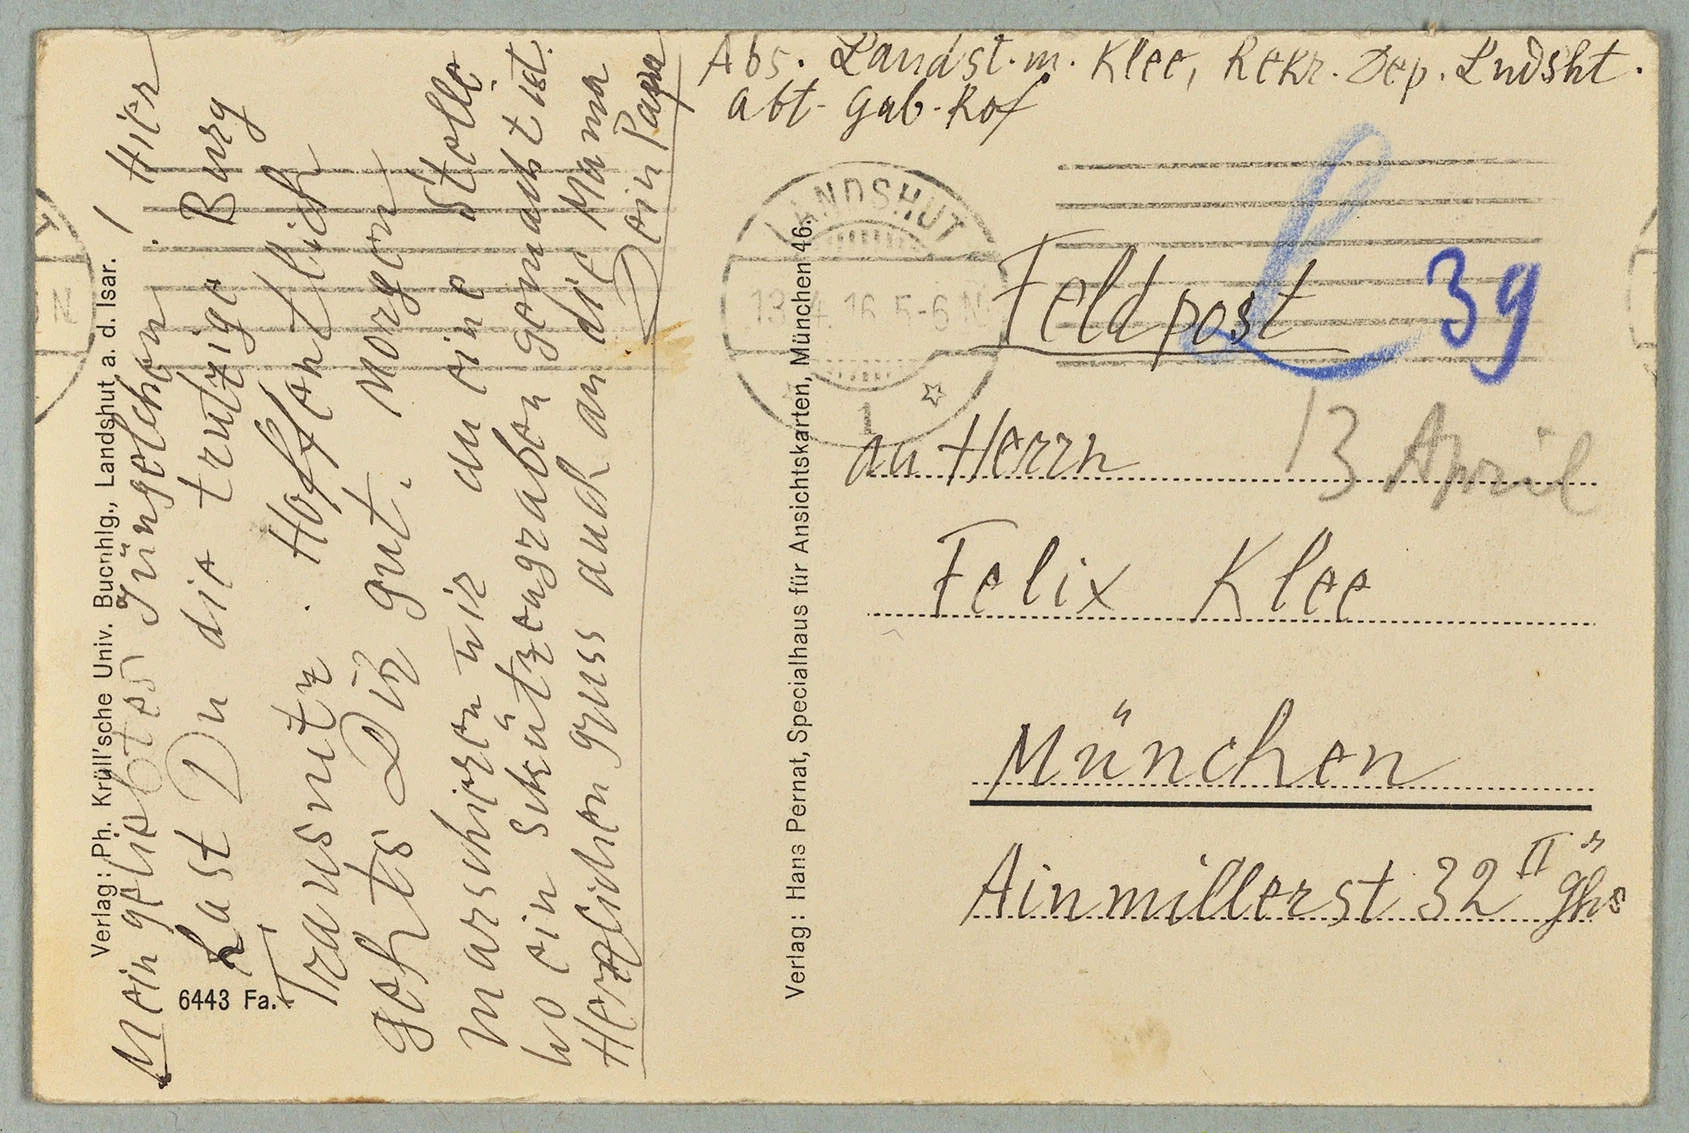 Abs. Landst. m. Klee, Rekr. Dep. Lndsht.
Abt. Gab-Rof
LANDSHUT
13.4.16.5-6 N
1
Feldpost
39
13 April
an Herrn
Felix Klee
München
Ainmillerst 32 II ghs
Verlag: Hans Pernat, Specialhaus für Ansichtskarten, München 46.
Verlag: Ph. Krüll'sche Univ. Buchhlg., Landshut a. d. Isar.
6443 Fa.
Mein geliebtes Jüngelchen! Hier
hast Du die trutzige Burg
Trausnitz. Hoffentlich
gehts Dir gut. Morgen
marschieren wir an eine Stelle
wo ein Schützengraben gemacht ist.
Herzlichen Gruss auch an die Mama
Dein Papa